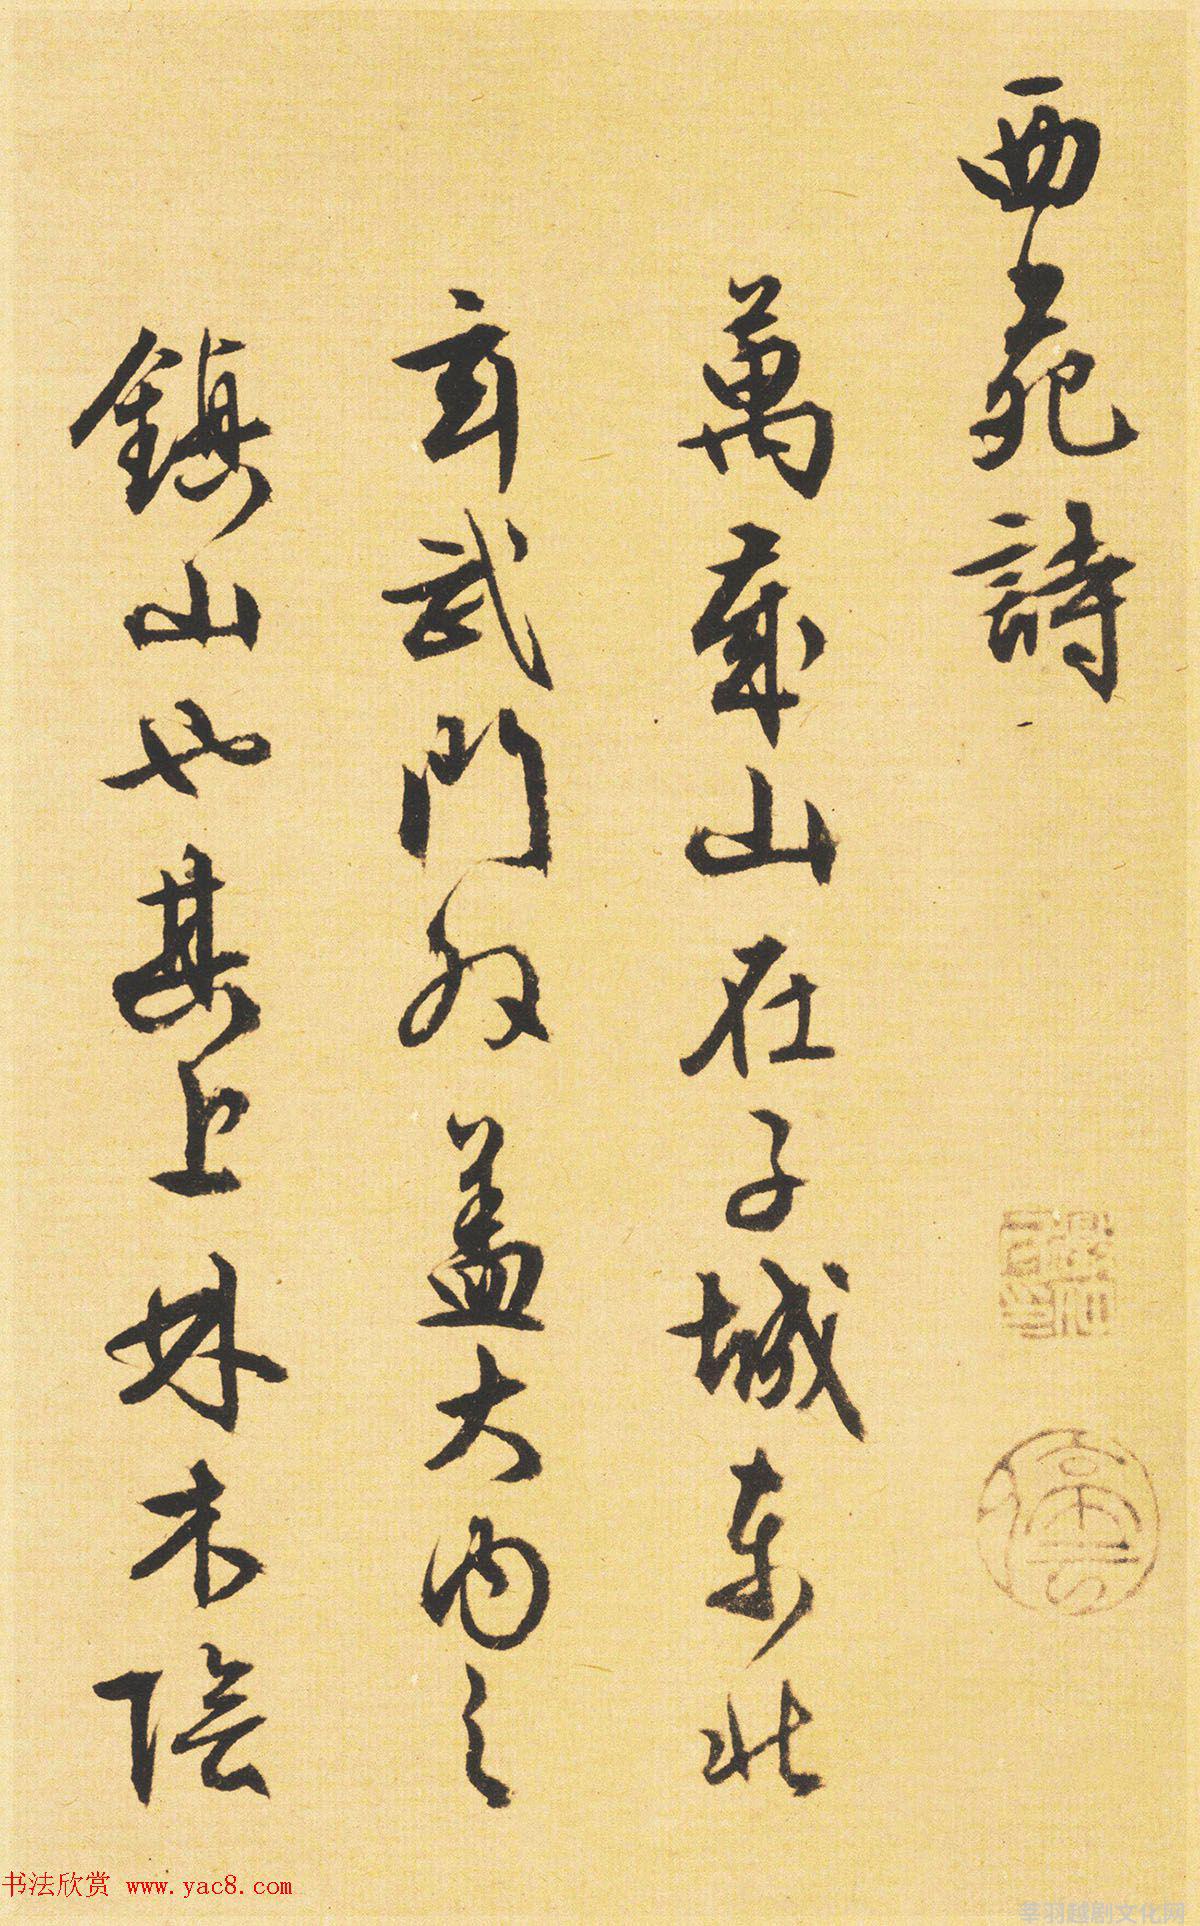 西苑詩
萬歲山在子城東北
玄武門外蓋大內之
鎮山也其上林木陰
书法欣赏 www.yac8.com
莘羽越剧文化网